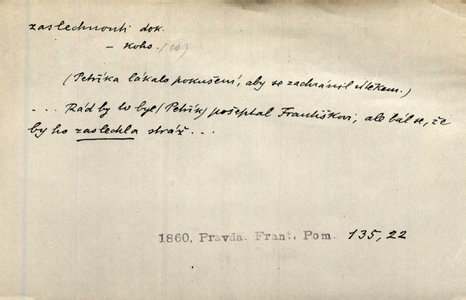 zaslechnouti dok.
– koho. (co)
(Petříka lákalo pokušení, aby se zachránil útěkem.)
... Rád by to byl (Petřík) pošeptal Františkovi, ale bál se, že
by ho zaslechla stráž ...
1860, Pravda. Frant. Pom. 135, 22